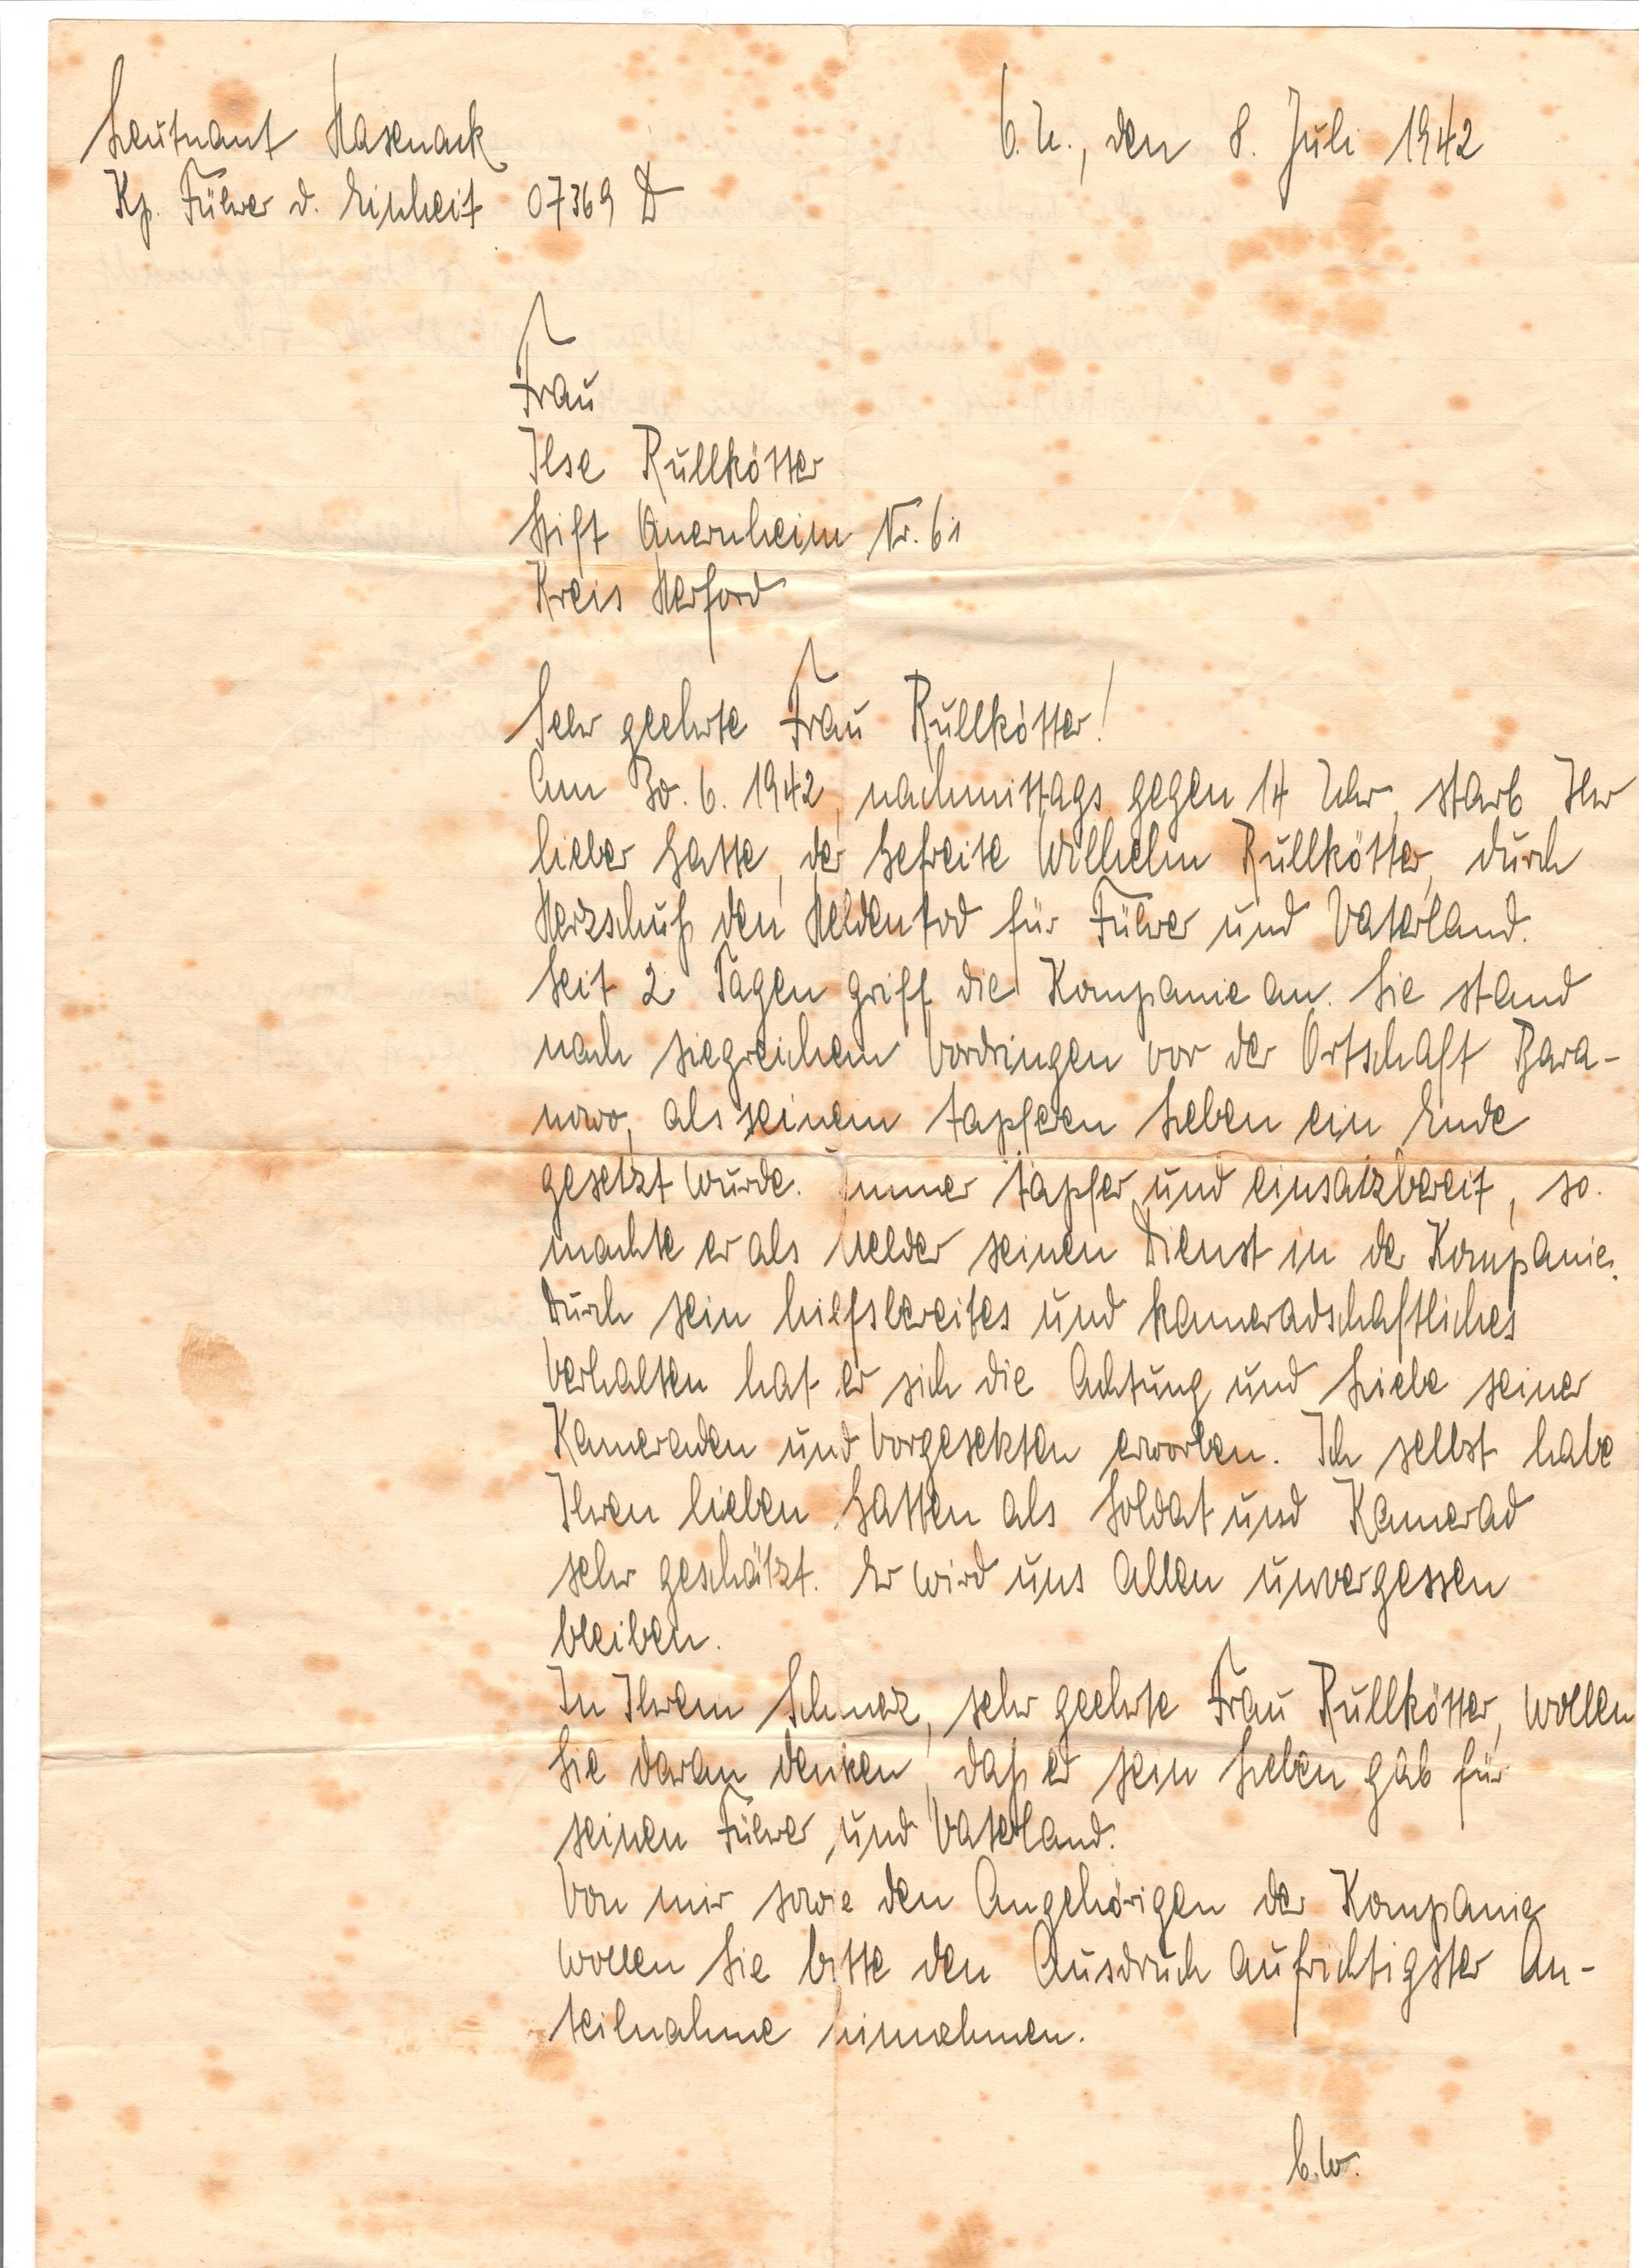 Leutnant Hasenack
O.U., den 8. Juli 1942
Kp. Führer d. Einheit 07369 D
Frau
Ilse Rullkötter
Stift Quernheim Nr. 61
Kreis Herford
Sehr geehrte Frau Rullkötter!
Am 30. 6. 1942, nachmittags gegen 14 Uhr, starb Ihr
lieber Gatte, der Gefreite Wilhelm Rullkötter, durch
Herzschuß den Heldentod für Führer und Vaterland.
Seit 2 Tagen griff die Kompanie an. Sie stand
nach siegreichem Vordringen vor der Ortschaft Bara-
nowo, als seinem tapferen Leben ein Ende
gesetzt wurde. Immer tapfer und einsatzbereit, so
machte er als Melder seinen Dienst in der Kompanie.
Durch sein hilfsbereites und kameradschaftliches
Verhalten hat er sich die Achtung und Liebe seiner
Kameraden und Vorgesetzten erworben. Ich selbst habe
Ihren lieben Gatten als Soldat und Kamerad
sehr geschätzt. Er wird uns Allen unvergessen
bleiben.
In Ihrem Schmerz, sehr geehrte Frau Rullkötter, wollen
Sie daran denken, daß er sein Leben gab für
seinen Führer und Vaterland.
Von mir sowie den Angehörigen der Kompanie
wollen Sie bitte den Ausdruck aufrichtigster An-
teilnahme hinnehmen.
b.w.